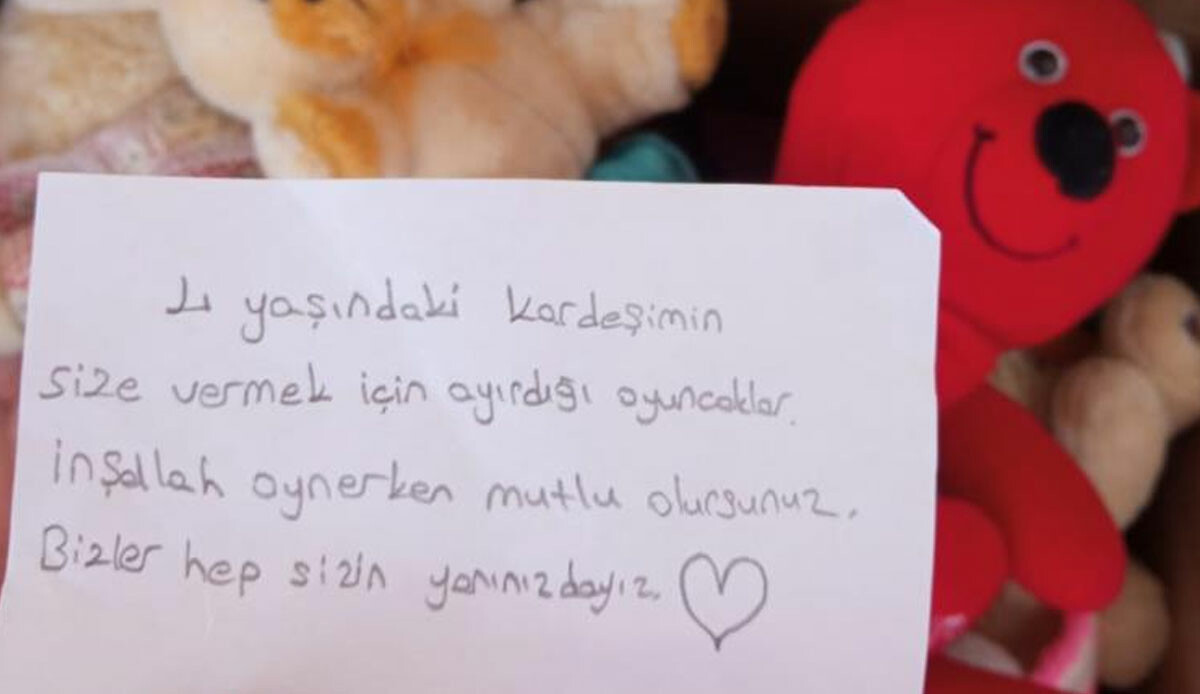 4 yaşındaki kardeşimin
size vermek için ayırdığı oyuncaklar.
inşallah oynerken mutlu olursunuz.
Bizler hep sizin yanınızdayız.